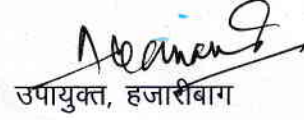 उपायुक्त, हजारीबाग